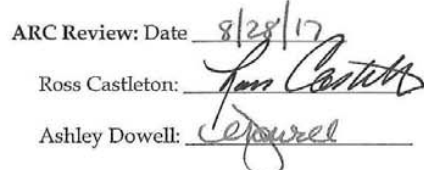 ARC Review: Date 8/28/17
Ross Castleton: Ross Castleton
Ashley Dowell: ADowell